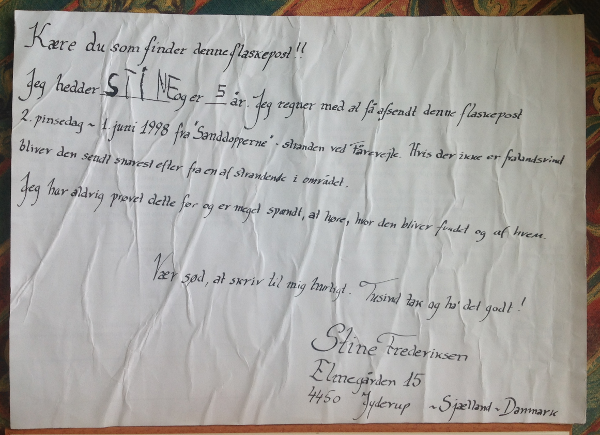 Kære du som finder denne flaskepost!!
Jeg hedder STINE og er 5 år. Jeg regner med at få afsendt denne flaskepost
2. pinsedag ~ 1. juni 1998 fra "Sanddopperne" - stranden ved Fårevejle. Hvis der ikke er fralandsvind
bliver den sendt snarest efter fra en af strandende i området.
Jeg har aldrig prøvet dette før og er meget spændt, at høre, hvor den bliver fundet og af hvem.
Vær sød, at skriv til mig hurtigt. Tusind tak og ha' det godt!
Stine Frederiksen
Elmegården 15
4450 Jyderup ~ Sjælland ~ Danmark